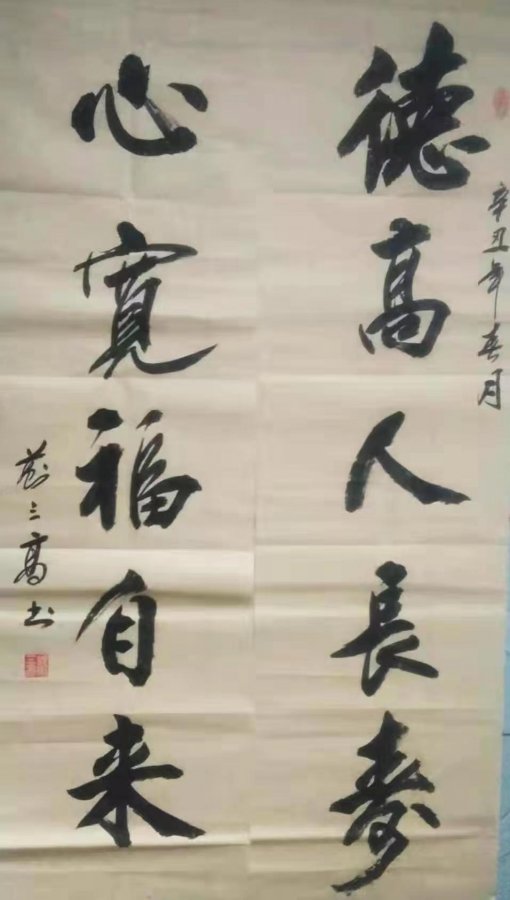 辛丑年春月
德高人長壽
心寬福自来
三高书